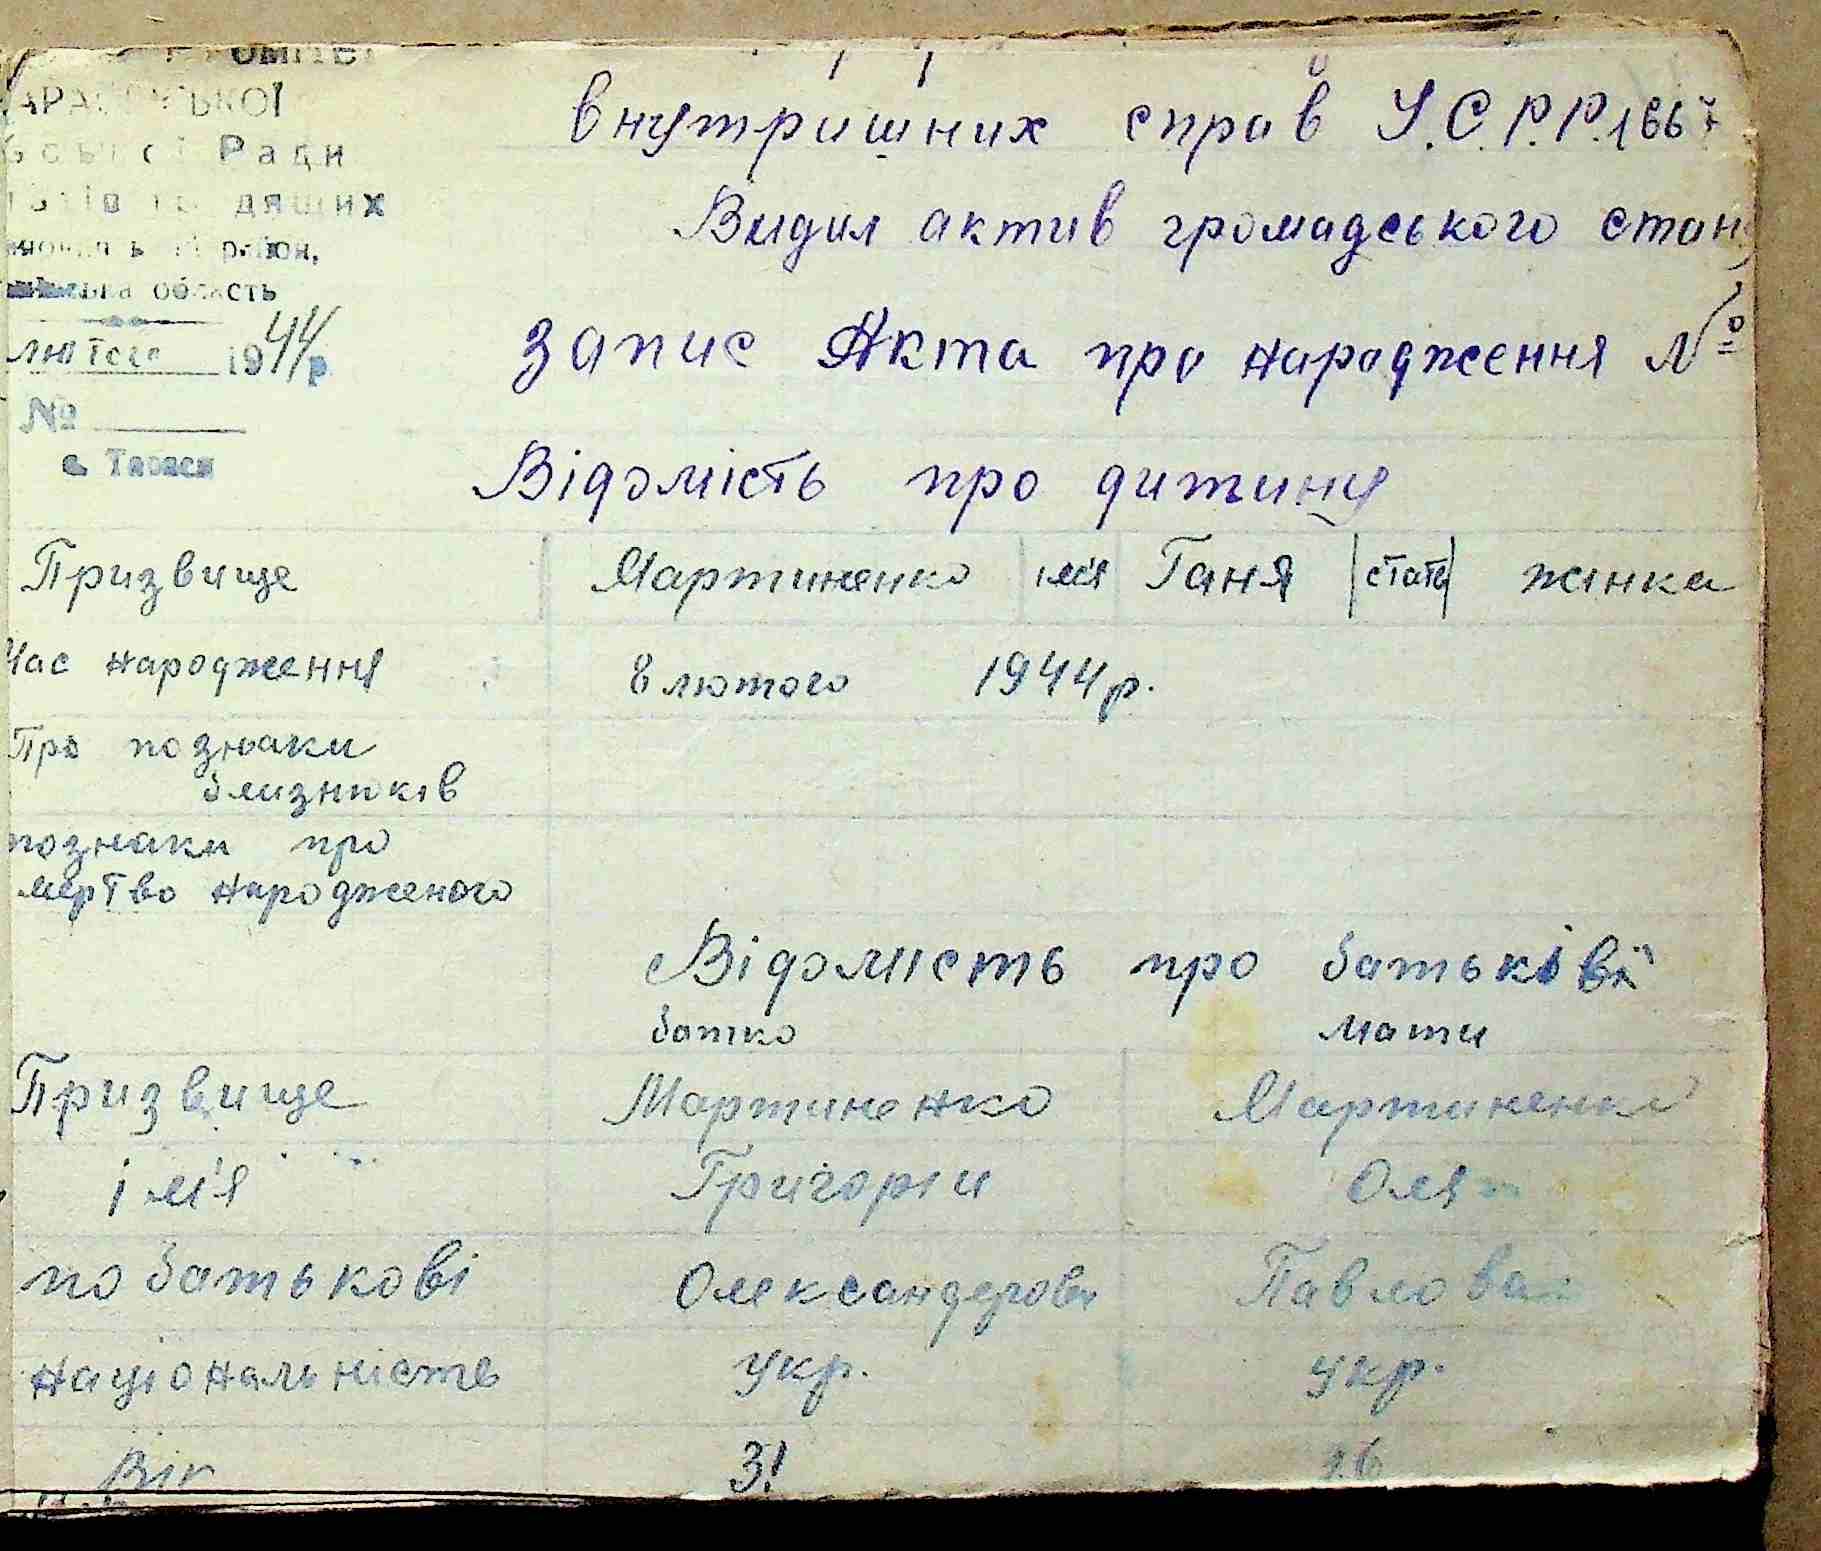 Ради
район,
область
лютого 1944 р.
№
с. Тараси
внутришних справ У.С.Р.Р. 166
Видил актив громадського стану
Запис Акта про народження №
Відомість про дитину
Призвище Мартиненко ім'я Ганя стать жінка
Час народження 8 лютого 1944 р.
Про познаки
близників
познаки про
мертво народженого
Відомість про батьків
батко мати
Призвище Мартиненко Мартиненко
ім'я Григории Оля
по батькові Олександеров Павлова
Національність укр. укр.
Вік 31 26